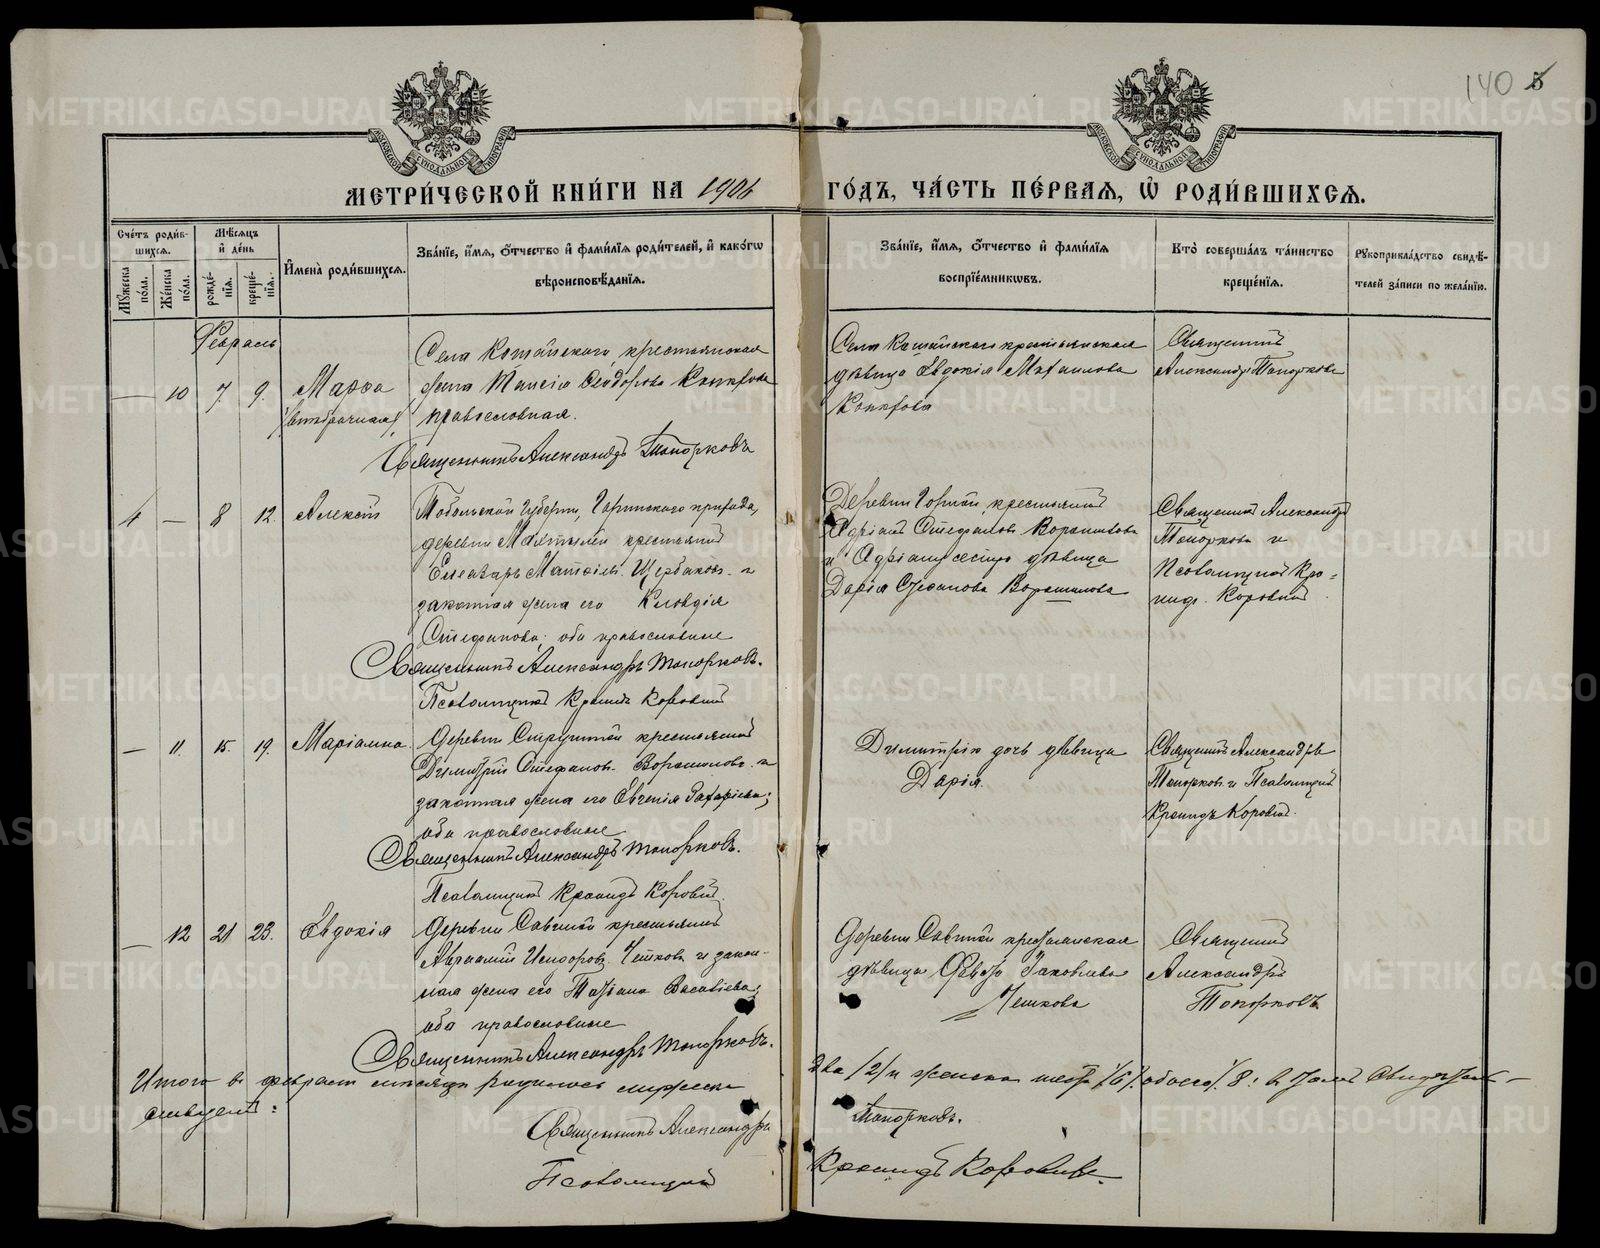 140 5
МЕТРИ́ЧЕСКОЙ КНИ́ГИ НА 1906
ГО́ДЪ, ЧА́СТЬ ПЕ́РВАЯ, Ѡ҆ РОДИ́ВШИХСЯ.
Счётъ роди́вшихся.
Мѣ́сяцъ и҆ де́нь
Мꙋ́жеска по́ла.
Же́нска по́ла.
рожде́нїѧ.
креще́нїѧ.
И҆мена̀ роди́вшихсѧ.
Зва́нїе, и҆́мѧ, ѻ҆́тчество и҆ фами́лїѧ роди́телей, и҆ како́гѡ
вѣроисповѣ́данїѧ.
Зва́нїе, и҆́мѧ, ѻ҆́тчество и҆ фами́лїѧ
воспрїе́мникѡвъ.
Кто̀ соверша́лъ та́инство
креще́нїѧ.
Рꙋкоприкла́дство свидѣ́-
телей за́писи по жела́нїю.
Февраль
— 10 7 9. Марѳа
(внѣбрачная)
Села Кошайскаго крестьянская
жена Таисія Ѳеодорова
православная.
Священникъ Александръ Топорковъ
Села Кошайскаго крестьянская
дѣвица Евдокія Михаилова
Священникъ
Александръ Топорковъ
4 — 8 12. Алексѣй
Тобольской губерніи, Гаринскаго прихода,
деревни крестьянинъ
Елеазаръ Щербаковъ и
законная жена его Клавдія
Стефанова; оба православные
Священникъ Александръ Топорковъ.
Псаломщикъ Кронидъ Коровинъ
Деревни крестьянинъ
Адріанъ Стефановъ Ворошиловъ
и Адріана сестра дѣвица
Дарія Стефанова Ворошилова
Священникъ Александръ
Топорковъ и
Псаломщикъ Кро-
нидъ Коровинъ
— 11. 15. 19. Маріамна.
Деревни крестьянинъ
Димитрій Стефановъ Ворошиловъ и
законная жена его Евгенія Захаріева;
оба православные
Священникъ Александръ Топорковъ.
Псаломщикъ Кронидъ Коровинъ.
Димитрія дочь дѣвица
Дарія.
Священникъ Александръ
Топорковъ и Псаломщикъ
Кронидъ Коровинъ.
— 12 21 23. Евдокія
Деревни Савиной крестьянинъ
Авраамій Исидоровъ Чешковъ и закон-
ная жена его Татіана Васильева;
оба православные
Священникъ Александръ Топорковъ.
Деревни Савиной крестьянская
дѣвица Яковлева
Чешкова
Священникъ
Александръ
Топорковъ
Итого въ февралѣ мѣсяцѣ родилось мужеска
два /2/ и женска шесть /6/ обоего /8: въ томъ свидѣтель-
ствуемъ:
Священникъ Александръ
Топорковъ.
Псаломщикъ
Кронидъ Коровинъ.
METRIKI.GASO-URAL.RU